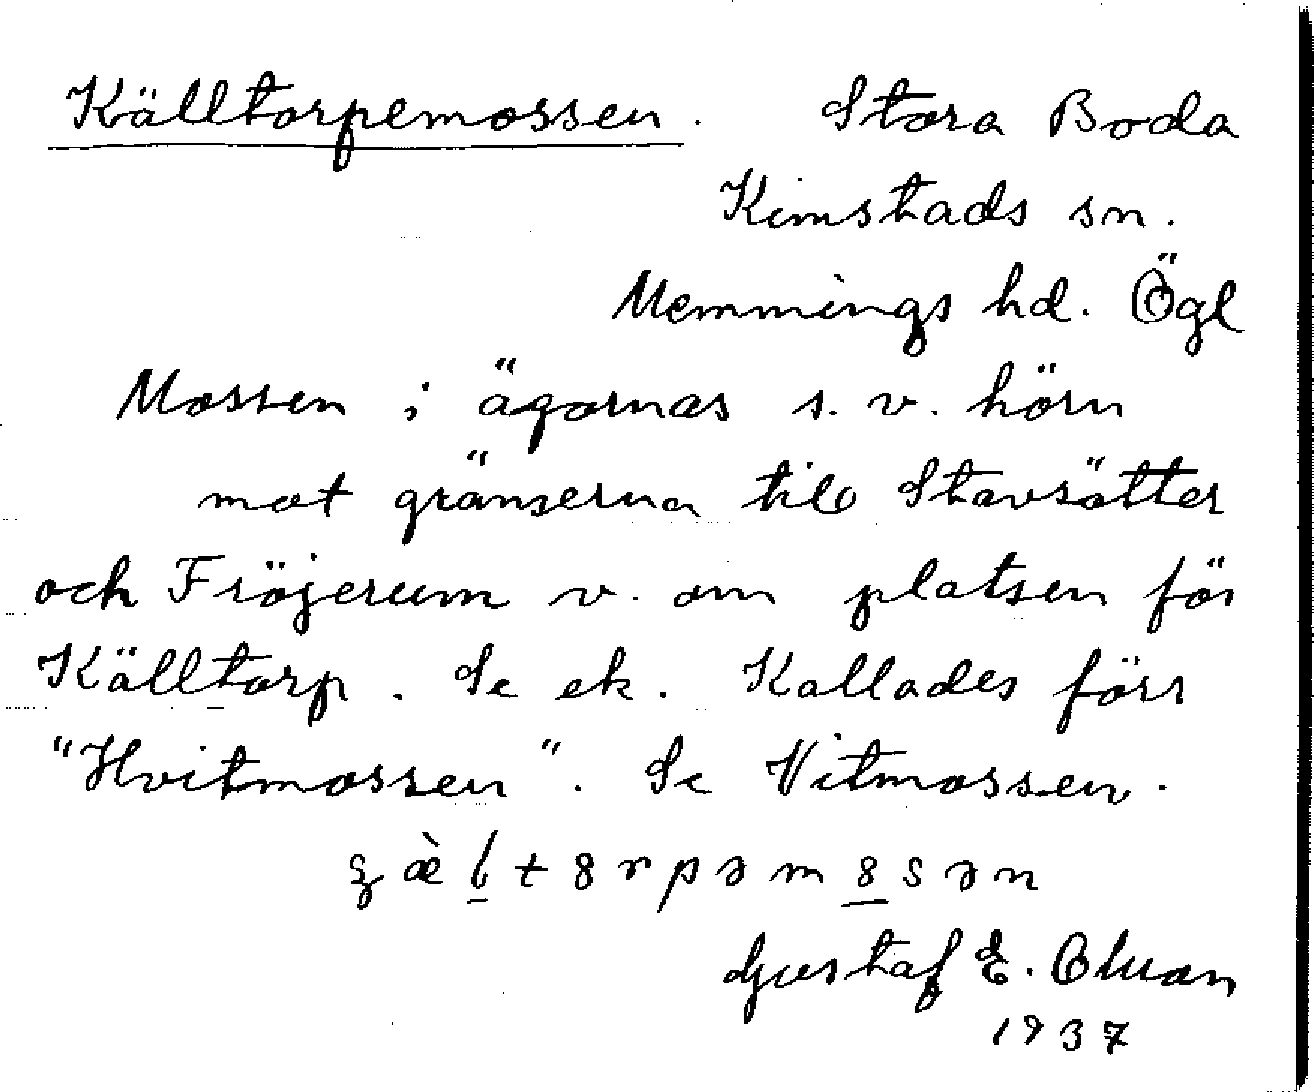 Källtorpemossen. Stora Boda
Kimstads sn.
Memmings hd. Ögl
Mossen i ägornas s. v. hörn
mot gränserna till Stavsätter
och Fröjerum v. om platsen för
Källtorp. Se ek. Kallades förr
"Hvitmossen". Se Vitmossen.
Gustaf E. Olson
1937